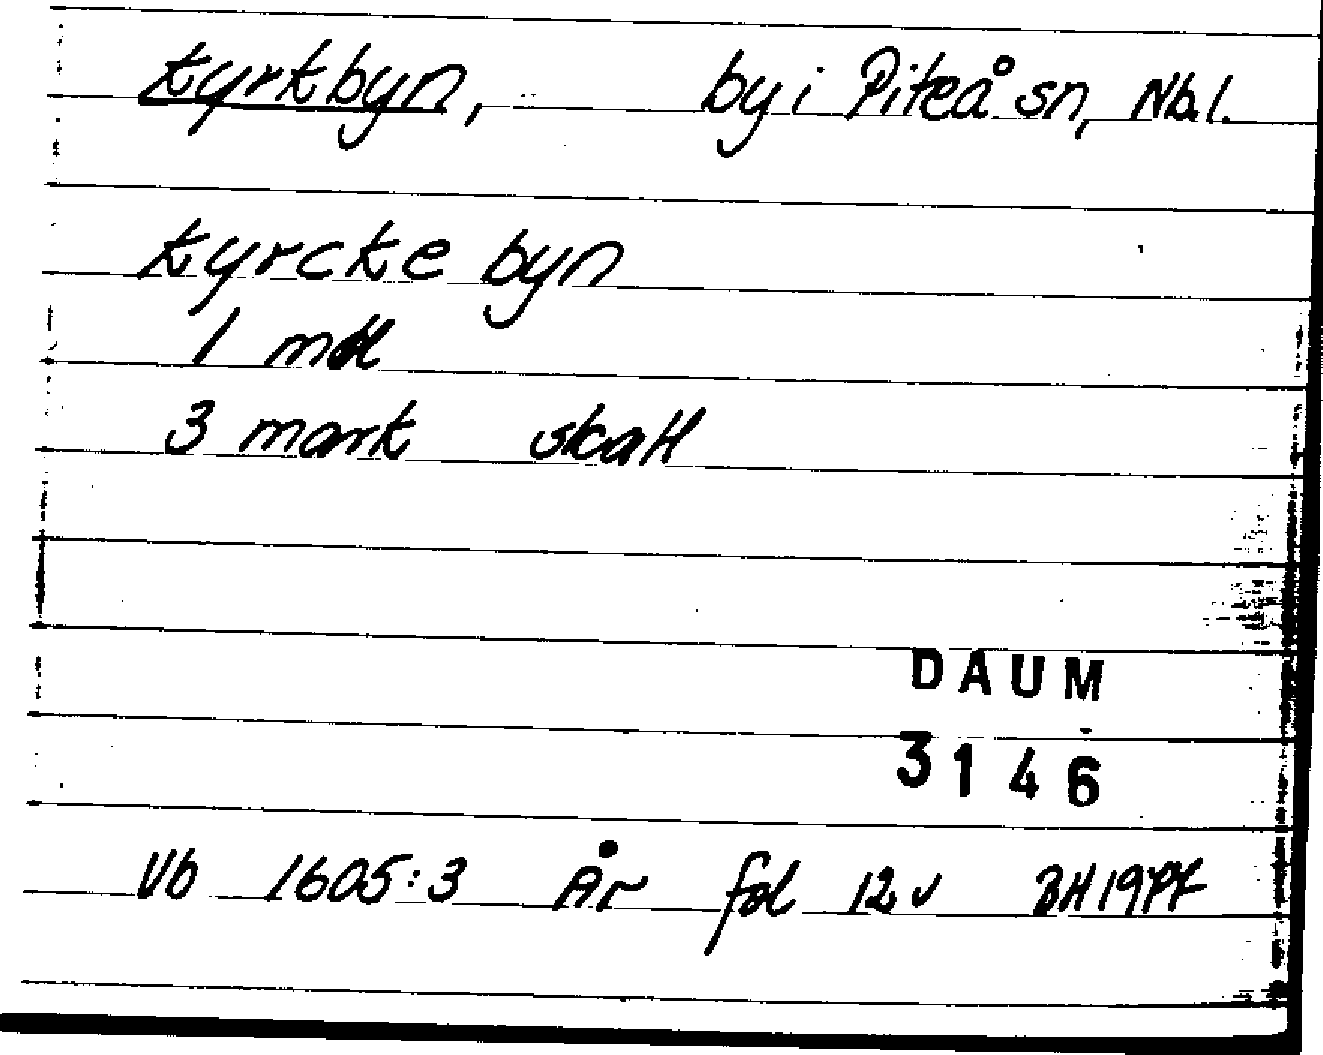 Kyrkbyn, by i Piteå sn, Nb.l.
Kyrcke byn
1 mkl
3 mark skatt
DAUM
3146
Vb 1605:3 År fol 12 v BH 1977